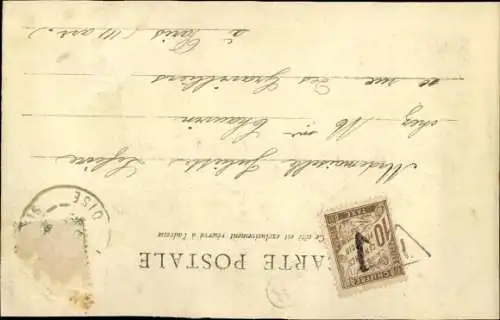 CARTE POSTALE
Ce côté est exclusivement réservé à l'adresse
Mademoiselle Juliette Lefèvre
chez Mr Chauvin
rue des Gravilliers
à Paris (III arr.)
OISE
10
CENTIMES
A PERCEVOIR
CHIFFRE
TAXE